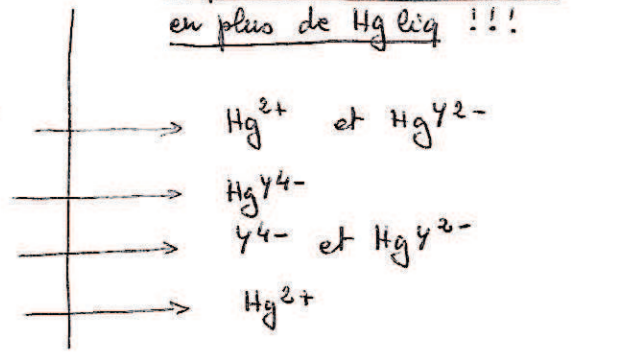 en plus de Hg liq !!!
Hg²⁺ et HgY²⁻
HgY⁴⁻
Y⁴⁻ et HgY²⁻
Hg²⁺